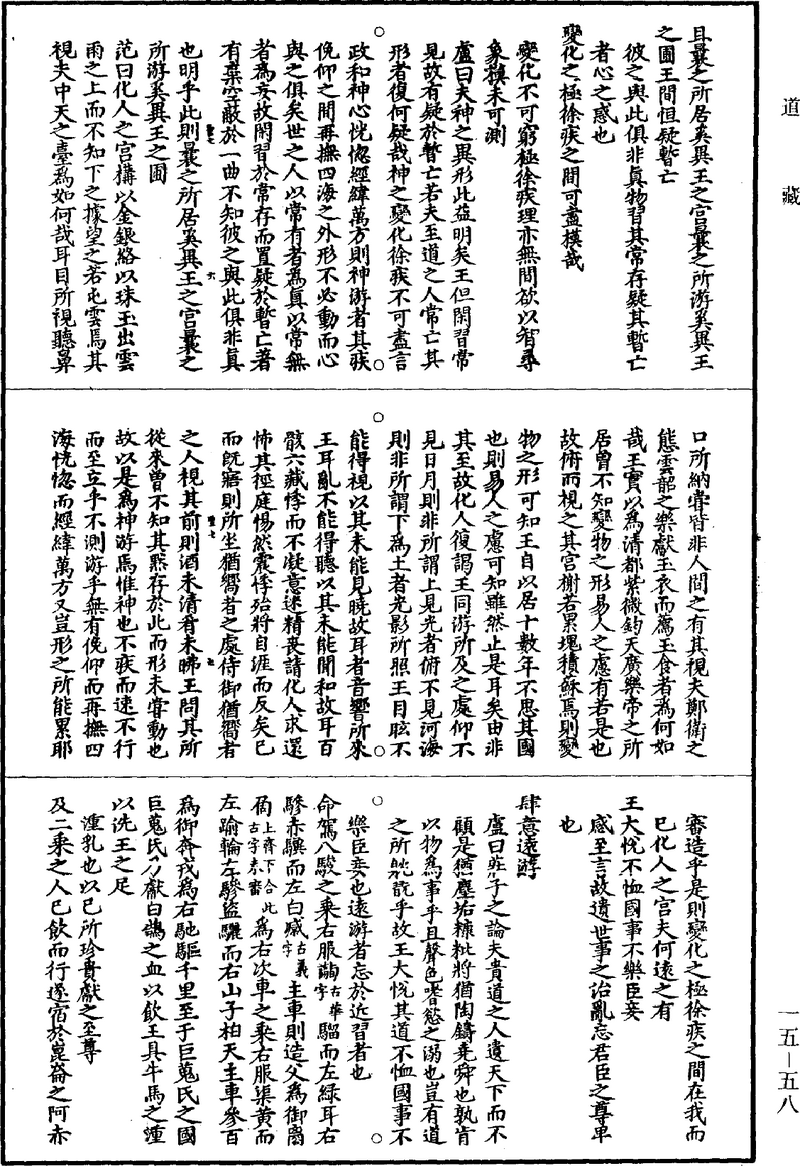 道藏
且曩之所居奚異王之宮曩之所游奚異王
之圃王閒恒疑蹔亡
彼之與此俱非眞物習其常存疑其暫亡
者心之惑也
變化之極徐疾之間可盡模哉
變化不可窮極徐疾理亦無間欲以智尋
象模未可測
盧曰夫神之異形此益明矣王但閑習常
見故有疑於暫亡若夫至道之人常亡其
形者復何疑哉神之變化徐疾不可盡言
政和神心恍惚經緯萬方則神游者其疾
俛仰之間再撫四海之外形不必動而心
與之俱矣世之人以常有者為眞以常無
者為妄故閑習於常存而置疑於暫亡者
有棄空蔽於一曲不知彼之與此俱非眞
也明乎此則曩之所居奚異王之宮曩之
所游奚異王之圃
范曰化人之宮構以金銀絡以珠玉出雲
雨之上而不知下之據望之若屯雲焉其
視夫中天之臺為如何哉耳目所視聽鼻
口所納嘗皆非人間之有其視夫鄭衛之
態雲韶之樂獻玉衣而薦玉食者為何如
哉王實以為清都紫微鈞天廣樂帝之所
居曾不知變物之形易人之慮有若是也
故俯而視之其宮榭若累塊積蘇焉則變
物之形可知王自以居十數年不思其國
也則易人之慮可知雖然止是耳矣由非
其至故化人復謁王同游所及之處仰不
見日月則非所謂上見光者俯不見河海
則非所謂下為土者光影所照王目眩不
能得視以其未能見曉故耳音響所來
王耳亂不能得聽以其未能聞和故耳百
骸六藏悸而不凝意迷精喪請化人求還
怖其徑庭惕然震悸殆將自涯而反矣已
而既寤則所坐猶嚮者之處侍御猶嚮者
之人視其前則酒未清肴未昲王問其所
從來曾不知其默存於此而形未嘗動也
故以是為神游焉惟神也不疾而速不行
而至立乎不測游乎無有俛仰而再撫四
海恍惚而經緯萬方又豈形之所能累耶
審造乎是則變化之極徐疾之間在我而
已化人之宮夫何遠之有
王大悅不恤國事不樂臣妾
感至言故遺世事之治亂忘君臣之尊卑
也
肆意遠游
盧曰莊子之論夫貴道之人遺天下而不
顧是猶塵垢糠粃將猶陶鑄堯舜也孰肯
以物為事乎且聲色嗜慾之溺也豈有道
之所躭翫乎故王大悅其道不恤國事不
樂臣妾也遠游者忘於近習者也
命駕八駿之乘右服𦽊古華字騮而左綠耳右
驂赤驥而左白𣚘古義字主車則造父為御𧮼
𠱷上齊下合此古字未審為右次車之乘右服渠黃而
左踰輪左驂盜驪而右山子柏夭主車參百
為御奔戎為右馳驅千里至于巨蒐氏之國
巨蒐氏乃獻白鵠之血以飲王具牛馬之湩
以洗王之足
湩乳也以已所珍貴獻之至尊
及二乘之人已飲而行遂宿於崑崙之阿赤
一五—五八